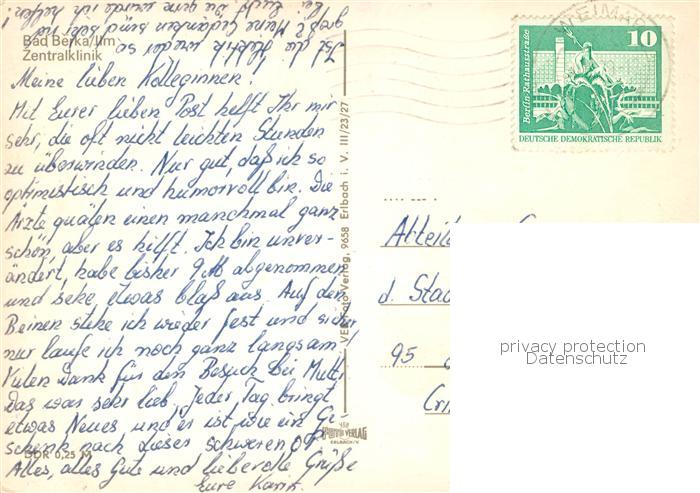 Bad Berka/Ilm
Zentralklinik
Meine lieben Kolleginnen!
Mit Eurer lieben Post helft Ihr mir
sehr, die oft nicht leichten Stunden
zu überwinden. Nur gut, daß ich so
optimistisch und humorvoll bin. Die
Ärzte quälen einen manchmal ganz
schön, aber es hilft. Ich bin unver-
ändert, habe bisher abgenommen
und sehe etwas blaß aus. Auf den
Beinen stehe ich wieder fest und sicher
nur laufe ich noch ganz langsam!
Vielen Dank für den Besuch bei Mutti,
Das war sehr lieb. Jeder Tag bringt
etwas Neues und es ist wie ein Ge-
schenk nach dieser schweren OP.
Alles, alles Gute und liebevolle Grüße
Eure Karin.
DDR 0,25 M
VEB Foto-Verlag, 9658 Erlbach i. V. III/23/27
FOTO VERLAG
ERLBACH/V.
WEIMAR
10
Berlin · Rathausstraße
DEUTSCHE DEMOKRATISCHE REPUBLIK
d.
95
privacy protection
Datenschutz